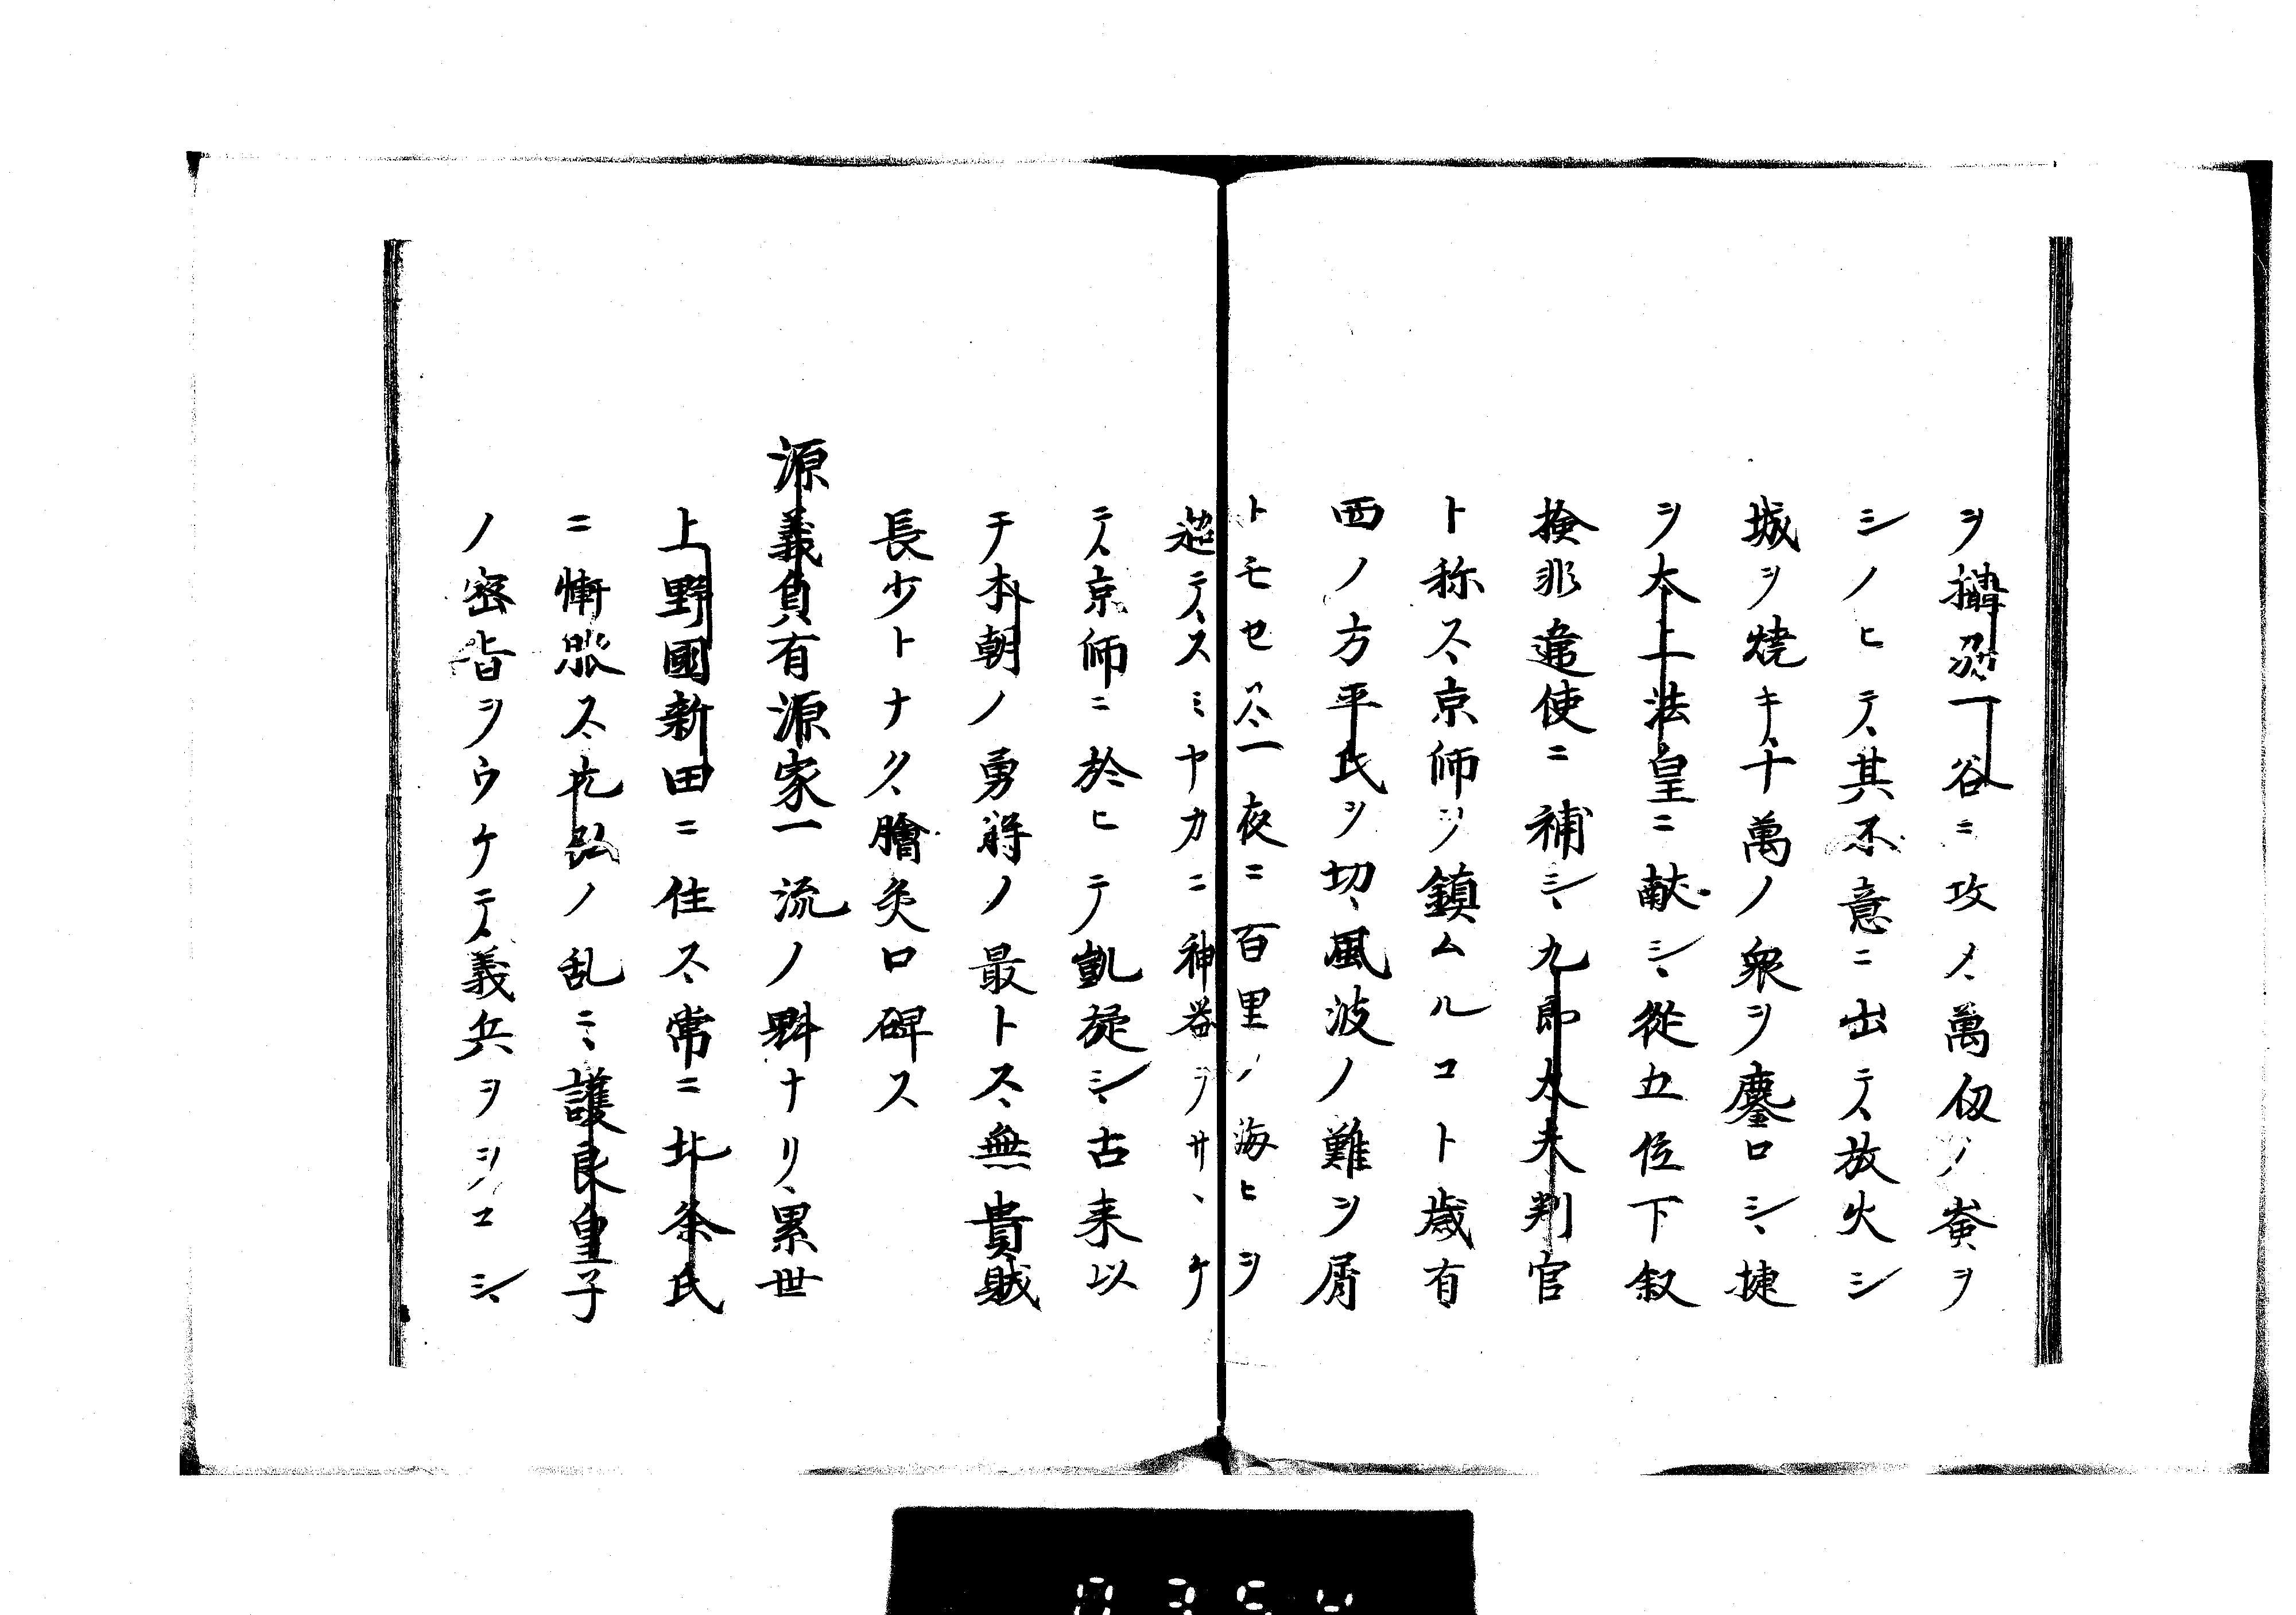 ヲ攝刕一谷ニ攻メ萬仭ノ嵓ヲ
シノヒテ其不意ニ出テ放火シ
城ヲ焼キ十萬ノ衆ヲ鏖ロシ捷
ヲ太上法皇ニ献シ從五位下叙
検非違使ニ補シ九郎太夫判官
ト称ス京師ヲ鎮ムルコト歳有
西ノ方平氏ヲ切風波ノ難ヲ屑
トモセス一夜ニ百里ノ海ヒヲ
超テスミヤカニ神器ヲサヽケ
テ京師ニ於ヒテ凱旋シ古来以
テ本朝ノ勇将ノ最トス無貴賎
長少トナク膾炙口碑ス
源義貞有源家一流ノ夥ナリ累世
上野國新田ニ住ス常ニ北条氏
ニ慚服ス元弘ノ乱ニ護良皇子
ノ密旨ヲウケテ義兵ヲヲコシ